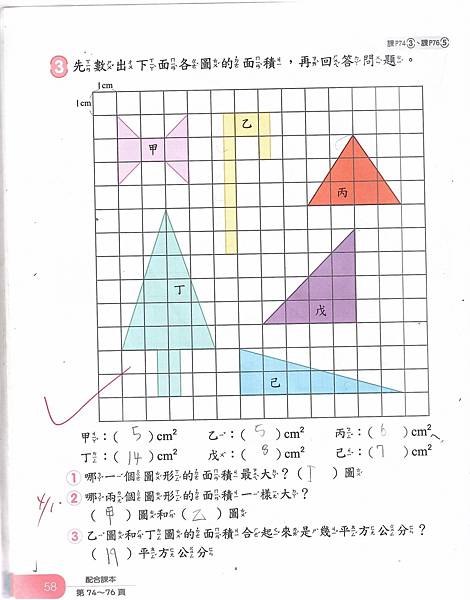 課P74③、課P76⑤
3 先數出下面各圖的面積，再回答問題。
1cm
1cm
甲
乙
丙
丁
戊
己
甲：( 5 )cm² 乙：( 5 )cm² 丙：( 6 )cm²
丁：( 14 )cm² 戊：( 8 )cm² 己：( 7 )cm²
① 哪一個圖形的面積最大？( 丁 )圖
② 哪兩個圖形的面積一樣大？
( 甲 )圖和( 乙 )圖
③ 乙圖和丁圖的面積合起來是幾平方公分？
( 19 )平方公分
58
配合課本
第 74～76 頁